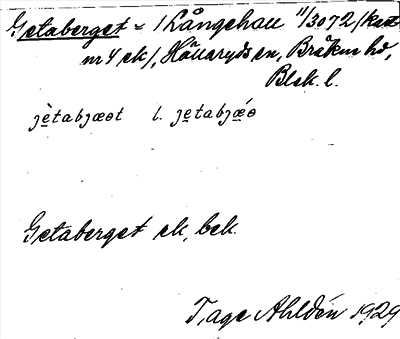 Getaberget = 1 Långehall 11/3072/kast
nr 4 ek/, Hällaryds sn, Bräkne hd,
Blek. l.
jètabjæət l. jetabjǽə
Getaberget ek, bek.
Tage Ahldén 1929